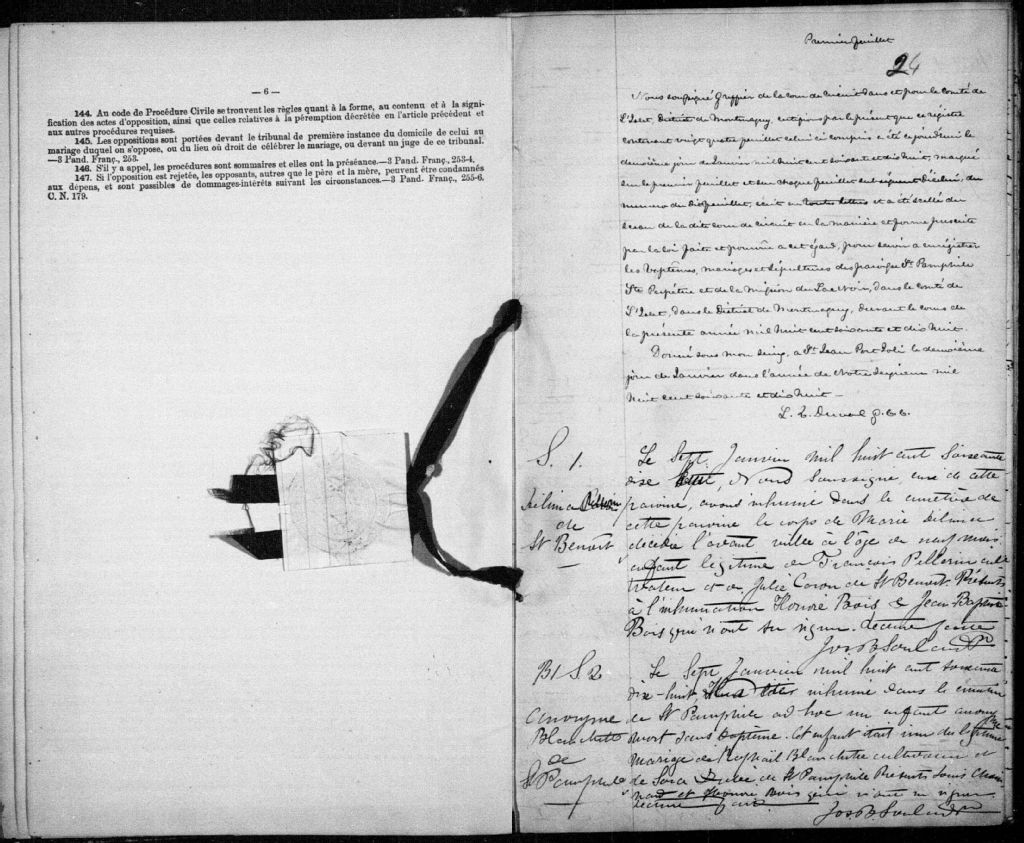 — 6 —
144. Au code de Procédure Civile se trouvent les règles quant à la forme, au contenu et à la signi-
fication des actes d'opposition, ainsi que celles relatives à la péremption décrétée en l'article précédent et
aux autres procédures requises.
145. Les oppositions sont portées devant le tribunal de première instance du domicile de celui au
mariage duquel on s'oppose, ou du lieu où droit de célébrer le mariage, ou devant un juge de ce tribunal.
—3 Pand. Franç., 253.
146. S'il y a appel, les procédures sont sommaires et elles ont la préséance.—3 Pand. Franç., 253-4.
147. Si l'opposition est rejetée, les opposants, autres que le père et la mère, peuvent être condamnés
aux dépens, et sont passibles de dommages-intérêts suivant les circonstances.—3 Pand. Franç., 255-6.
C. N. 179.
Premier feuillet
24
Nous soussigné Greffier de la cour de circuit dans et pour le comté de
L'Islet, District de Montmagny, certifions par le présent que ce registre
contenant vingt quatre feuillets celui ci compris a été ce jourd'hui le
deuxième jour de Janvier mil huit cent soixante et dix huit, marqué
sur le premier feuillet et sur chaque feuillet subséquent
numero du dit feuillet, écrit en toutes lettres et a été scellé du
sceau de la dite cour de circuit en la manière et forme prescrite
par la loi faite et pourvue a cet égard, pour servir a enregistrer
les Baptêmes, mariages et sépultures des paroisses St. Pamphile
Ste Perpétue et de la mission du Lac Noir, dans le comté de
L'Islet, dans le District de Montmagny, durant le cours de
la présente année mil huit cent soixante et dix huit.
Donné sous mon seing, a St. Jean Port Joli le deuxième
jour de Janvier dans l'année de Notre Seigneur mil
huit cent soixante et dix huit —
L. Z. Duval g. c. c.
S. 1.
de
St Benoît
Le Sept Janvier mil huit cent soixante
dix Nous soussigné, curé de cette
paroisse, avons inhumé dans le cimetière de
cette paroisse le corps de Marie
décédée l'avant veille à l'âge de neuf mois
enfant légitime de François Pellerin cul
tivateur et de Julie Caron de St Benoît. Présents
à l'inhumation Honoré Bois & Jean Baptiste
Bois qui n'ont su signer. Lecture faite
B1 S 2
Anonyme
Blanchette
de
St Pamphile
Le Sept Janvier mil huit cent soixante
dix-huit, inhumé dans le cimetière
de St Pamphile ad hoc un enfant anonyme
mort sans baptême. Cet enfant était du légitime
mariage de Raphaël Blanchette cultivateur et
de de St Pamphile Présents Louis
et Honoré Bois qui n'ont su signer.
Lecture faite.